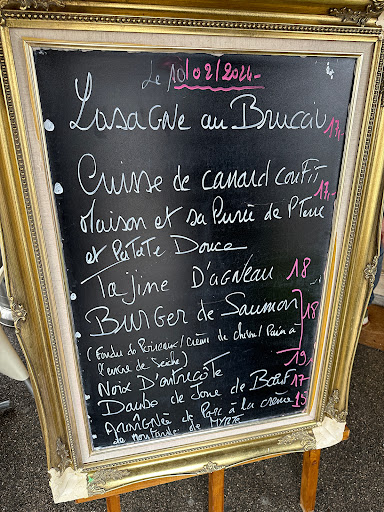 Le 10/02/2024-
Lasagne au Brucciu 17,
Cuisse de canard confit
Maison et sa Purée de P Terre 17,-
et Patate Douce
Tajine D'agneau 18
Burger de Saumon 18
(Fondue de Poireaux / Crème de chèvre / Pain à
l'encre de Seiche)
Noix D'entrecôte 19
Daube de Joue de Bœuf 17
Araignée de Porc à la crème 15
de moutarde de Myrte